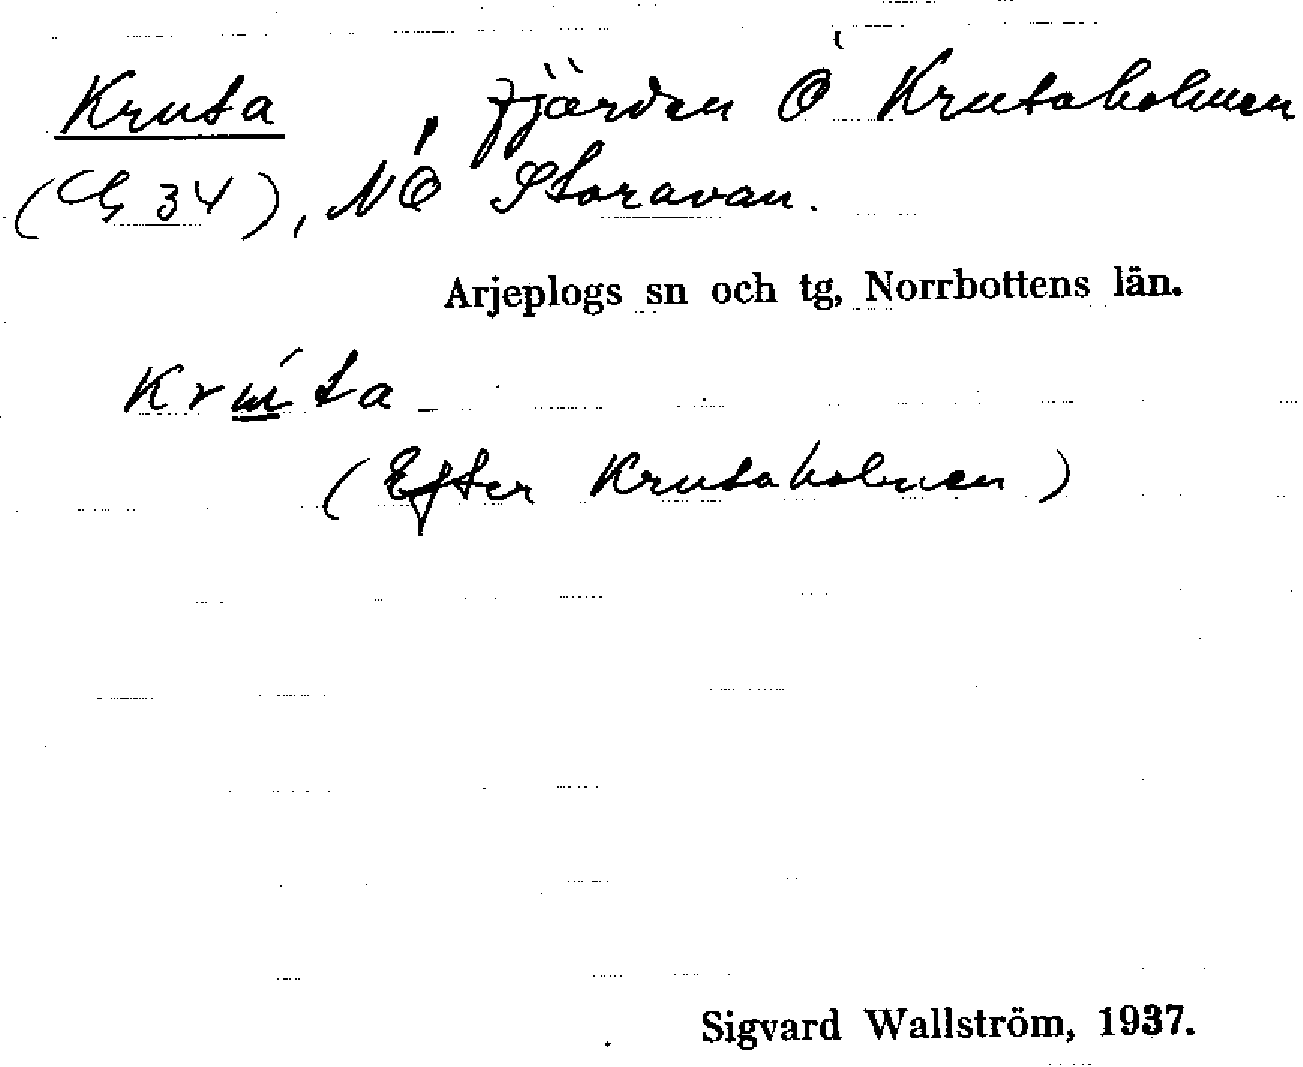 Kruta, fjärden Ö Krutaholmen
(G 34), NÖ Storavan.
Arjeplogs sn och tg, Norrbottens län.
(Efter Krutaholmen)
Sigvard Wallström, 1937.